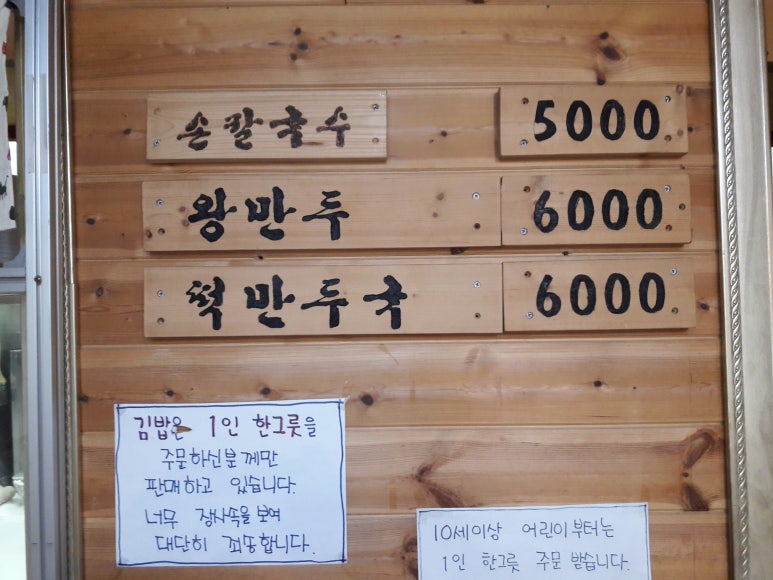 손칼국수 5000
왕만두 6000
떡만두국 6000
김밥은 1인 한그릇을
주문하신분께만
판매하고 있습니다.
너무 장사속을 보여
대단히 죄송합니다.
10세이상 어린이부터는
1인 한그릇 주문 받습니다.